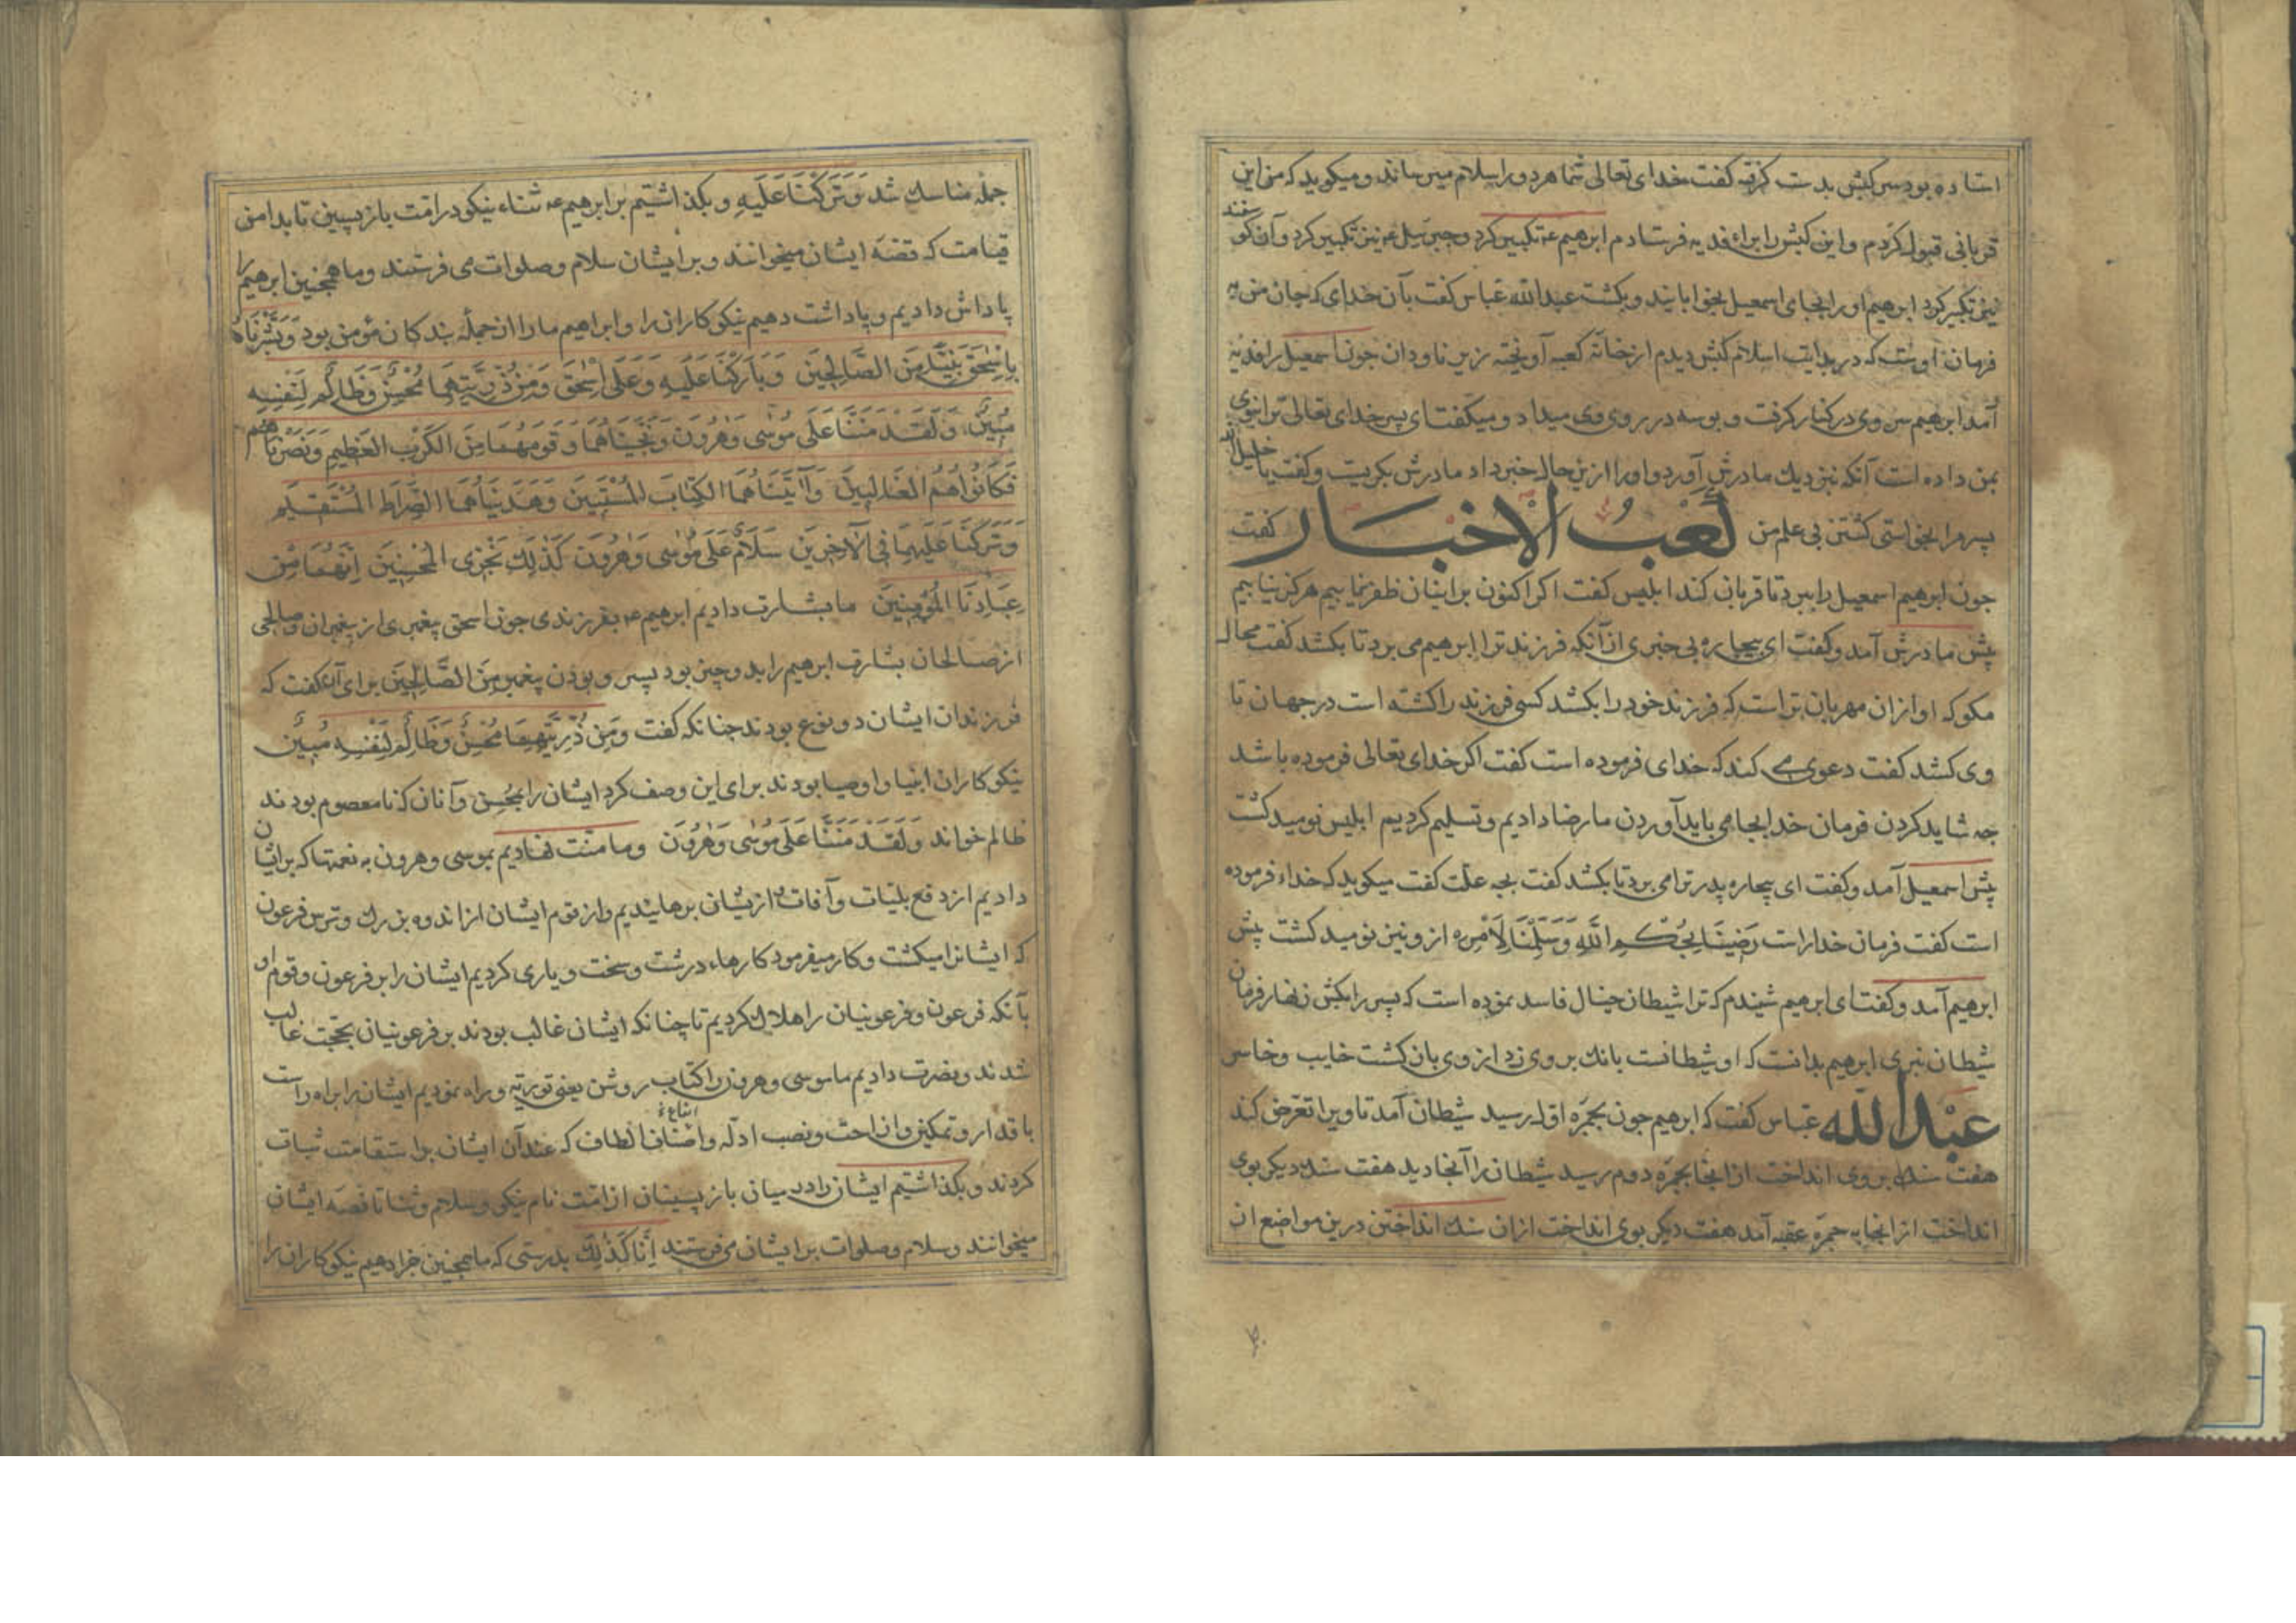 استاده بود سر کبش بدست کرفته کفت خدای تعالی شما هر دو را سلام میرساند و میکوید که من این
قربانی قبول کردم و این کبش را براء فدیه فرستادم ابرهیم عم تکبیر کرد و جبرئیل عم نیز تکبیر کرد و آن کوسفند
نیز تکبیر کرد ابرهیم او را بجای اسمعیل بخوابانید و بکشت عبدالله عباس کفت بآن خدای که جان من به
فرمان اوست که در بدایت اسلام کبش دیدم از خانه کعبه آویخته زیر ناودان جون اسمعیل را فدیه
آمد ابرهیم سر وی در کنار کرفت و بوسه در روی وی میداد و میکفت ای پسر خدای تعالی ترا بنوی
بمن داده است آنکه بنزدیك مادرش آورد و او را ازین حال خبر داد مادرش بکریست و کفت یا خلیل الله
پسر مرا بخواستی کشتن بی علم من کعب الاخبار کفت
جون ابرهیم اسمعیل را ببرد تا قربان کند ابلیس کفت اکر اکنون بر اینان ظفر نیابیم هرکز نیابیم
پیش مادرش آمد و کفت ای بیچاره بی خبری از آنکه فرزند ترا ابرهیم می برد تا بکشد کفت محال
مکو که او از ان مهربان تر است که فرزند خود را بکشد کسی فرزند را کشته است در جهان تا
وی کشد کفت دعوی می کند که خدای فرموده است کفت اکر خدای تعالی فرموده باشد
جه شاید کردن فرمان خدا بجا می باید آوردن ما رضا دادیم و تسلیم کردیم ابلیس نومید کشت
پیش اسمعیل آمد و کفت ای بیچاره پدر ترا می برد تا بکشد کفت بجه علت کفت میکوید که خداء فرموده
است کفت فرمان خدا راست رَضینَا بِحُکْمِ اللهِ وَسَلَّمْنَا لِاَمْرِه ازو نیز نومید کشت پیش
ابرهیم آمد و کفت ای ابرهیم شنیدم که ترا شیطان خیال فاسد نموده است که پسر را بکش زنهار فرمان
شیطان نبری ابرهیم بدانست که او شیطانست بانك بر وی زد از وی بازکشت خایب و خاسر
عبدالله عباس کفت که ابرهیم جون بجمره اول رسید شیطان آمد تا ویرا تعرض کند
هفت سنك بر وی انداخت از انجا بجمره دوم رسید شیطان را آنجا دید هفت سنك دیکر بوی
انداخت از انجا به جمره عقبه آمد هفت دیکر بوی انداخت از ان سنك انداختن درین مواضع از
جمله مناسك شد وَتَرَکْنَا عَلَیهِ و بکذاشتیم بر ابرهیم عم ثناء نیکو در امت بازپسین تا بدامن
قیامت که قصه ایشان میخوانند و بر ایشان سلام و صلوات می فرستند و ما همجنین ابرهیم را
پاداش دادیم و پاداشت دهیم نیکوکاران را و ابراهیم ما را از جمله بندکان مؤمن بود وَبَشَّرنَاهُ
بِاِسْحَقَ نَبِیّاً مِنَ الصَّالِحِینَ وَبَارَکْنَا عَلَیهِ وَعَلَی اِسْحَقَ وَمِنْ ذُرِّیَّتِهِمَا مُحْسِنٌ وَظَالِمٌ لِنَفْسِهِ
مُبِینٌ وَلَقَدْ مَنَنَّا عَلَی مُوسَی وَهَرُونَ وَنَجَّیْنَاهُمَا وَقَوْمَهُمَا مِنَ الکَرْبِ العَظِیمِ وَنَصَرْنَاهُم
فَکَانُوا هُمُ الغَالِبِینَ وَآتَیْنَاهُمَا الکِتَابَ المُسْتَبِینَ وَهَدَیْنَاهُمَا الصِّرَاطَ المُسْتَقِیمَ
وَتَرَکْنَا عَلَیهِمَا فِی الآخِرِینَ سَلَامٌ عَلَی مُوسَی وَهَرُونَ کَذَلِكَ نَجْزِی المُحْسِنِینَ اِنَّهُمَا مِنْ
عِبَادِنَا المُؤْمِنِینَ ما بشارت دادیم ابرهیم عم بفرزندی جون اسحق پیغمبری از پیغمبران و صالحی
از صالحان بشارت ابرهیم را بدو چیز بود پسر و بودن پیغمبر مِنَ الصَّالِحِینَ برای آن کفت که
فرزندان ایشان دو نوع بودند جنانکه کفت وَمِنْ ذُرِّیَّتِهِمَا مُحْسِنٌ وَظَالِمٌ لِنَفْسِهِ مُبِینٌ
نیکوکاران انبیا و اوصیا بودند برای این وصف کرد ایشان را بمحسن و آنان که نا معصوم بودند
ظالم خواند وَلَقَدْ مَنَنَّا عَلَی مُوسَی وَهَرُونَ و ما منت نهادیم بموسی و هرون به نعمتها که بر ایشان
دادیم از دفع بلیات و آفات از یشان برهانیدیم و از قوم ایشان از اندوه بزرك و ترس فرعون
که ایشانرا میکشت و کار میفرمود کارهاء درشت و سخت و یاری کردیم ایشان را بر فرعون و قوم او
بآنکه فرعون و فرعونیان را هلاك کردیم تا چنانکه ایشان غالب بودند بر فرعونیان بحجت غالب
شدند و نصرت دادیم ما موسی و هرون را کتاب روشن یعنی توریة و راه نمودیم ایشان را براه راست
باقدار و تمکین و ازاحت و نصب ادله و اصناف انواع الطاف که عند آن ایشان بر استقامت ثبات
کردند و بکذاشتیم ایشان را در میان بازپسینان از امت نام نیکو و سلام و ثنا تا قصه ایشان
میخوانند و سلام و صلوات بر ایشان می فرستند اِنَّا کَذَلِكَ بدرستی که ما همجنین جزا دهیم نیکوکاران را